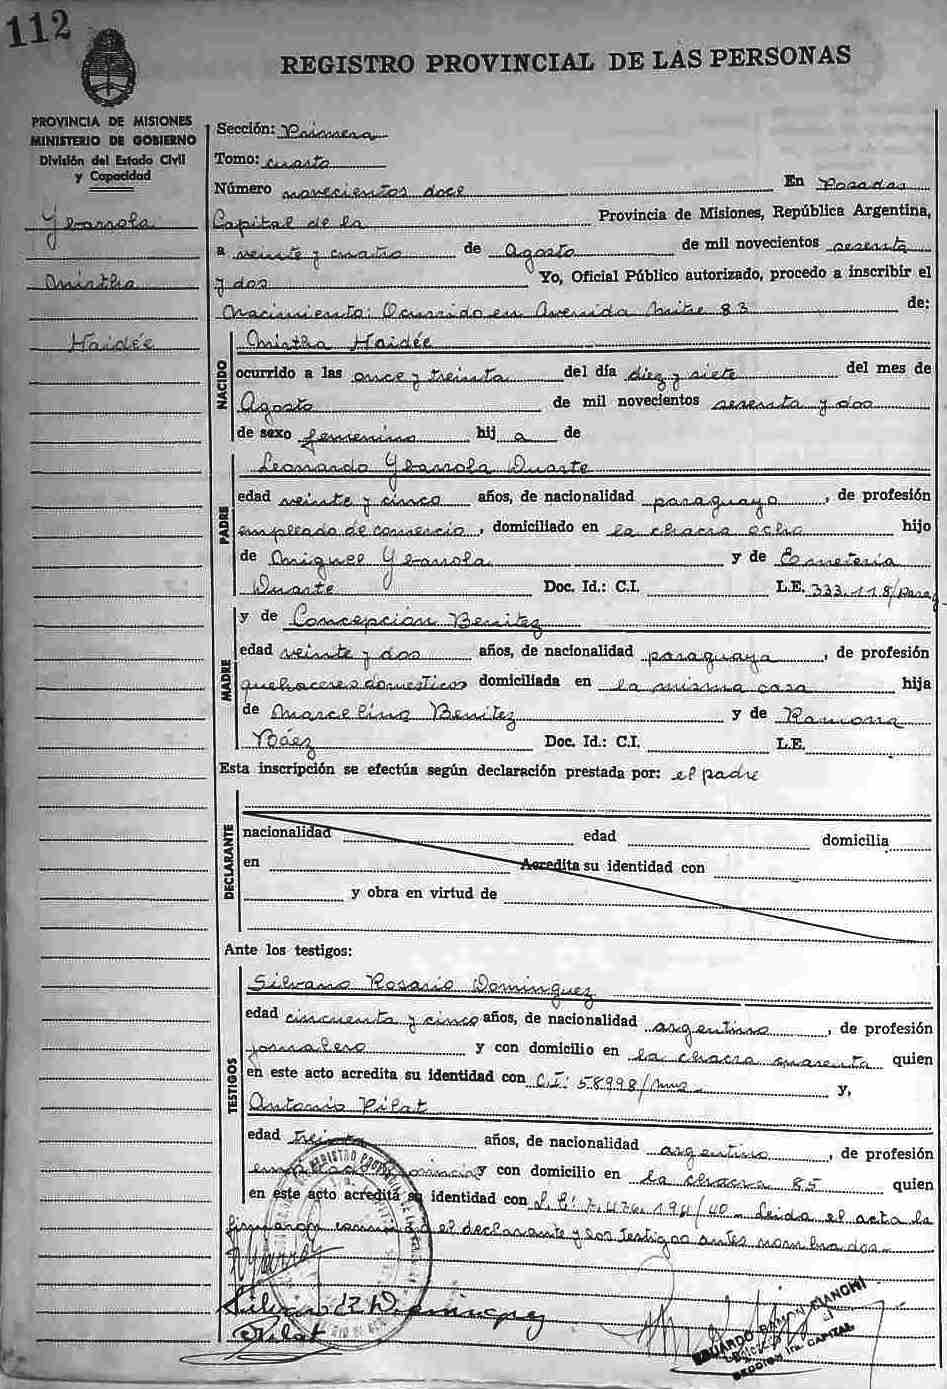 112
REGISTRO PROVINCIAL DE LAS PERSONAS
PROVINCIA DE MISIONES
MINISTERIO DE GOBIERNO
División del Estado Civil
y Capacidad
Ybarrola
Mirtha
Haidée
Sección: Primera
Tomo: cuarto
Número novecientos doce En Posadas
Capital de la Provincia de Misiones, República Argentina,
a veinte y cuatro de Agosto de mil novecientos sesenta
y dos Yo, Oficial Público autorizado, procedo a inscribir el
Nacimiento: Ocurrido en Avenida Mitre 83 de:
NACIDO
Mirtha Haidée
ocurrido a las once y treinta del día diez y siete del mes de
Agosto de mil novecientos sesenta y dos
de sexo femenino hij a de
PADRE
Leonardo Ybarrola Duarte
edad veinte y cinco años, de nacionalidad paraguayo, de profesión
empleado de comercio, domiciliado en la chacra ocho hijo
de Miguel Ybarrola y de Emeteria
Duarte Doc. Id.: C.I. L.E. 333.118/parag
MADRE
y de Concepción Benitez
edad veinte y dos años, de nacionalidad paraguaya, de profesión
quehaceres domesticos domiciliada en la misma casa hija
de Marcelino Benitez y de Ramona
Báez Doc. Id.: C.I. L.E.
Esta inscripción se efectúa según declaración prestada por: el padre
DECLARANTE
nacionalidad edad domicilia
en Acredita su identidad con
y obra en virtud de
Ante los testigos:
TESTIGOS
Silvano Rosario Dominguez
edad cincuenta y cinco años, de nacionalidad argentino, de profesión
jornalero y con domicilio en la chacra cuarenta quien
en este acto acredita su identidad con C.I: 58998/mns y,
Antonio Pilat
edad treinta años, de nacionalidad argentino, de profesión
empleado y con domicilio en la chacra 85 quien
en este acto acredita su identidad con L.E: 7.476.196/40 Leida el acta la
firmaron conmigo el declarante y los testigos antes nombrados
Silvano R Dominguez
Pilat
EDUARDO RAMON BIANCHI
SECCION 1ra. CAPITAL